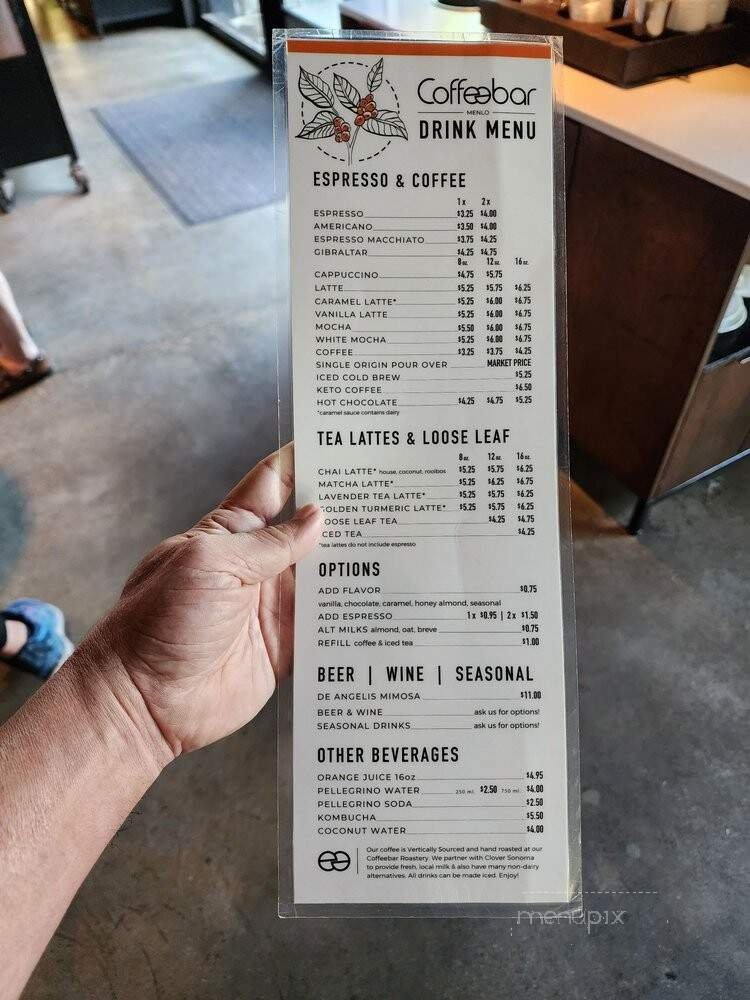 Coffeebar
MENLO
DRINK MENU
ESPRESSO & COFFEE
1x 2x
ESPRESSO $3.25 $4.00
AMERICANO $3.50 $4.00
ESPRESSO MACCHIATO $3.75 $4.25
GIBRALTAR $4.25 $4.75
8 oz. 12 oz. 16 oz.
CAPPUCCINO $4.75 $5.75
LATTE $5.25 $5.75 $6.25
CARAMEL LATTE* $5.25 $6.00 $6.75
VANILLA LATTE $5.25 $6.00 $6.75
MOCHA $5.50 $6.00 $6.75
WHITE MOCHA $5.25 $6.00 $6.75
COFFEE $3.25 $3.75 $4.25
SINGLE ORIGIN POUR OVER MARKET PRICE
ICED COLD BREW $5.25
KETO COFFEE $6.50
HOT CHOCOLATE $4.25 $4.75 $5.25
*caramel sauce contains dairy
TEA LATTES & LOOSE LEAF
8 oz. 12 oz. 16 oz.
CHAI LATTE* house, coconut, rooibos $5.25 $5.75 $6.25
MATCHA LATTE* $5.25 $6.25 $6.75
LAVENDER TEA LATTE* $5.25 $5.75 $6.25
GOLDEN TURMERIC LATTE* $5.25 $5.75 $6.25
LOOSE LEAF TEA $4.25 $4.75
ICED TEA $4.25
*tea lattes do not include espresso
OPTIONS
ADD FLAVOR $0.75
vanilla, chocolate, caramel, honey almond, seasonal
ADD ESPRESSO 1x $0.95 | 2x $1.50
ALT MILKS almond, oat, breve $0.75
REFILL coffee & iced tea $1.00
BEER | WINE | SEASONAL
DE ANGELIS MIMOSA $11.00
BEER & WINE ask us for options!
SEASONAL DRINKS ask us for options!
OTHER BEVERAGES
ORANGE JUICE 16oz $4.95
PELLEGRINO WATER 250 ml. $2.50 750 ml. $4.00
PELLEGRINO SODA $2.50
KOMBUCHA $5.50
COCONUT WATER $4.00
Our coffee is Vertically Sourced and hand roasted at our
Coffeebar Roastery. We partner with Clover Sonoma
to provide fresh, local milk & also have many non-dairy
alternatives. All drinks can be made iced. Enjoy!
menupix